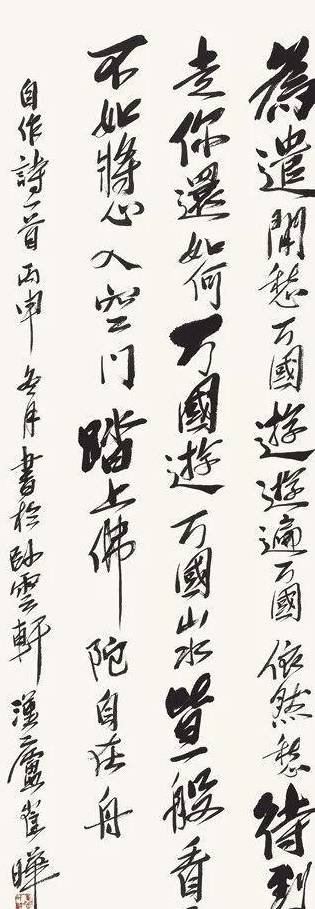 為遣閒愁万國遊遊遍万國依然愁待到
走你還如何万國遊万國山水皆一般看
不如將心入空門踏上佛陀自在舟
自作詩一首丙申冬月書於卧雲軒漢廬崔曄